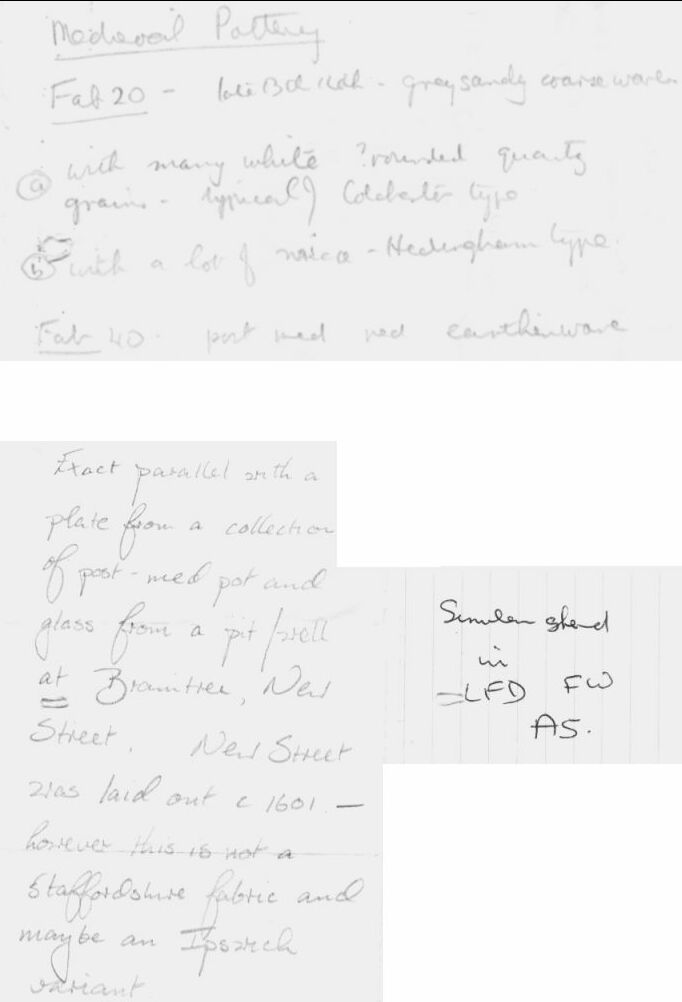 Medieval Pottery
Fab 20 - late 13th 14th - grey sandy coarse wares
(a) with many white ?rounded quartz
grains - typical) Colchester type
(b) with a lot of mica - Hedingham type.
Fab 40. post med red earthenware
Exact parallel with a
plate from a collection
of post-med pot and
glass from a pit/well
at Braintree, New
Street. New Street
was laid out c 1601 —
however this is not a
Staffordshire fabric and
maybe an Ipswich
variant
Similar sherd
in
LFD FW
A5.